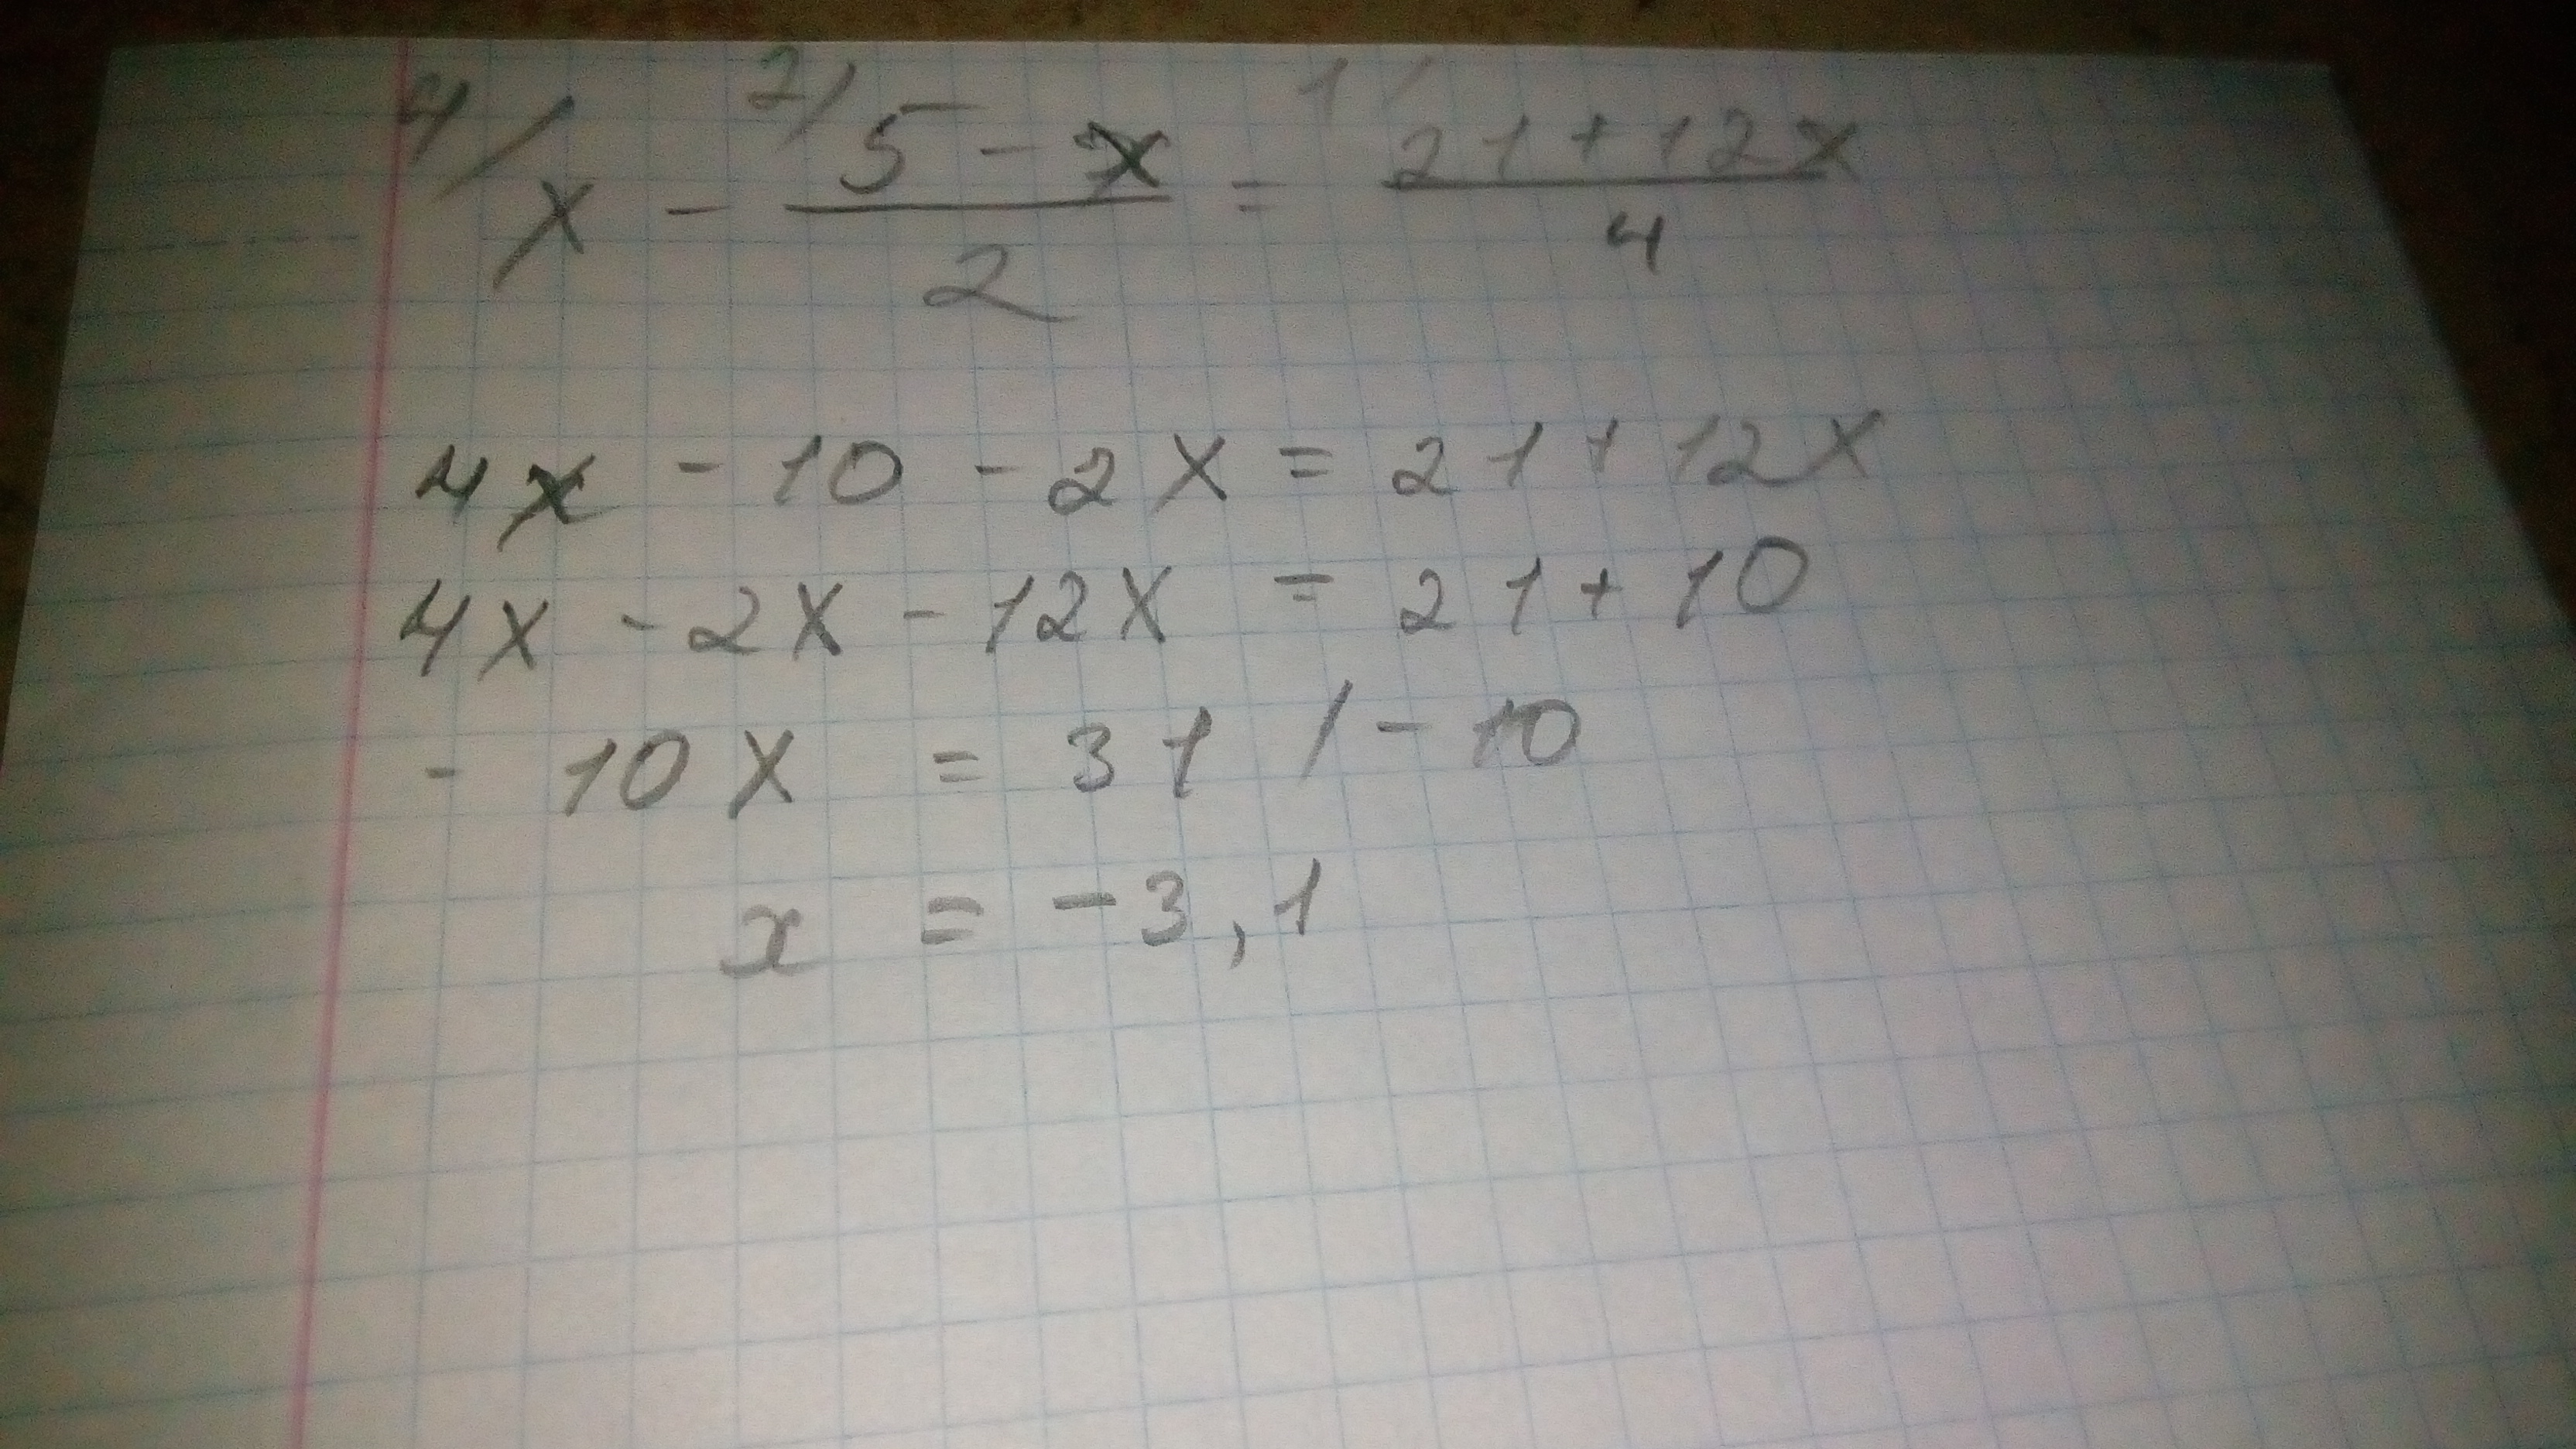 4/ x - 2/ 5 - x / 2 = 1/ 21 + 12x / 4
4x - 10 - 2x = 21 + 12x
4x - 2x - 12x = 21 + 10
- 10x = 31 / - 10
x = - 3,1